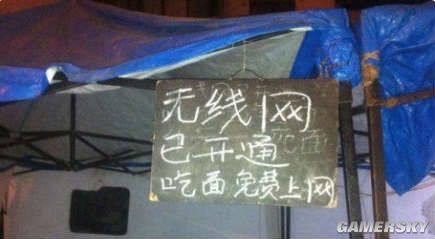 无线网
已开通
吃面免费上网
GAMERSKY